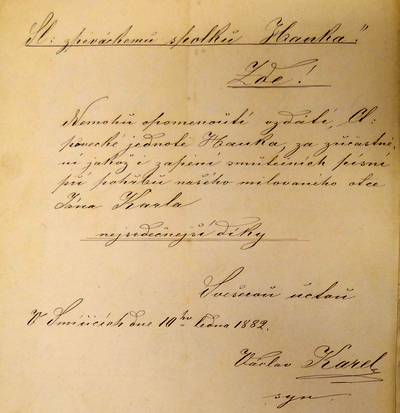 Sl: zpěváckému spolku Hanka".
Zde!
Nemohu opomenouti vzdáti, Cl.
pěvecké jednotě Hanka, za zúčastně-
ní jakož i zapění smutečních písní
při pohřbu našeho milovaného otce
Jána Karla
nejsrdečnější díky
S veškerou úctou
V Smiřicích dne 10ho ledna 1882.
Václav Karel
syn.